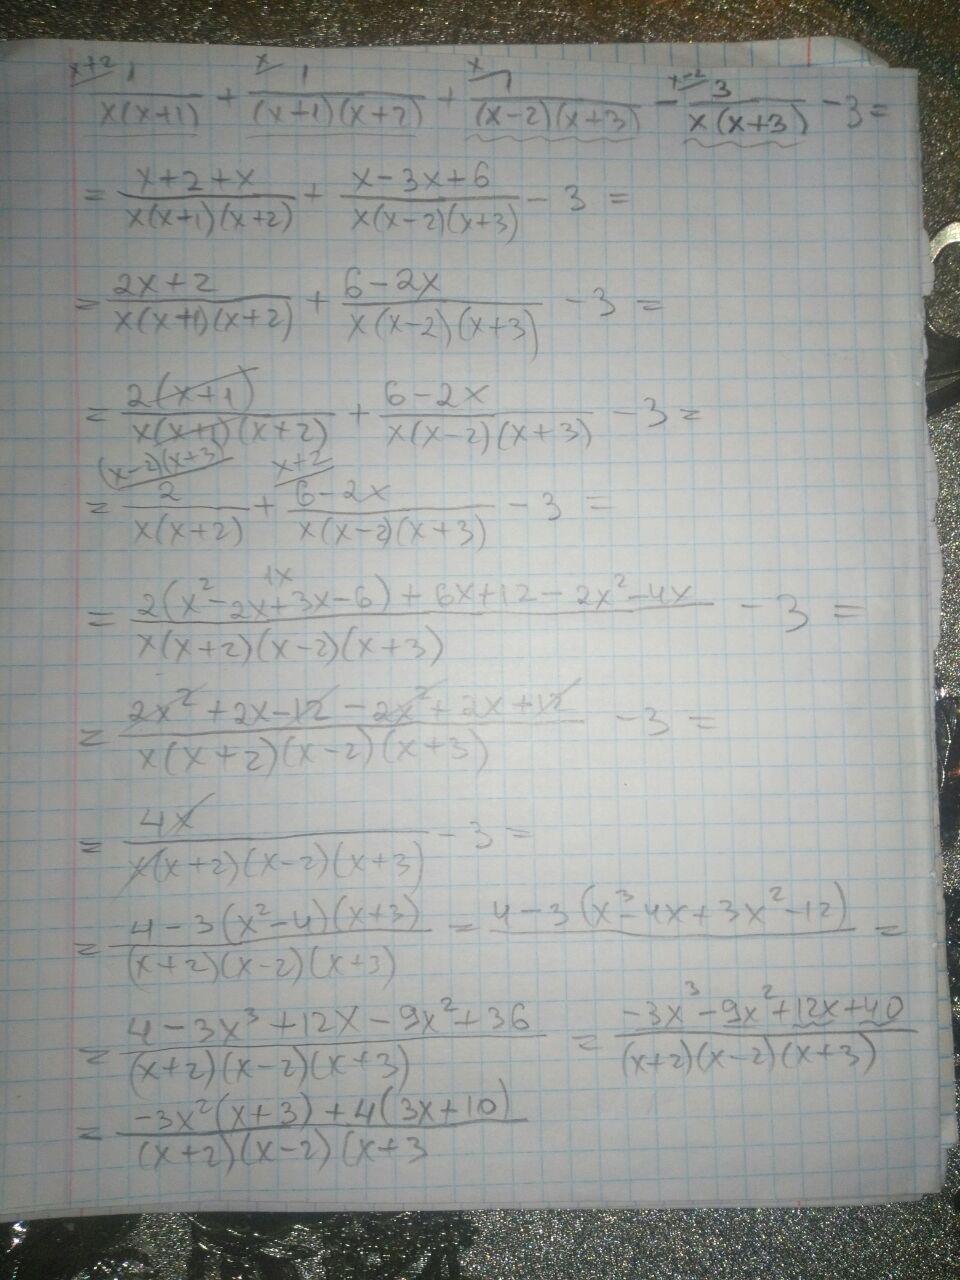 x+2 x x x-2
1/(x(x+1)) + 1/((x+1)(x+2)) + 1/((x-2)(x+3)) - 3/(x(x+3)) - 3 =
= (x+2+x)/(x(x+1)(x+2)) + (x-3x+6)/(x(x-2)(x+3)) - 3 =
= (2x+2)/(x(x+1)(x+2)) + (6-2x)/(x(x-2)(x+3)) - 3 =
= 2(x+1)/(x(x+1)(x+2)) + (6-2x)/(x(x-2)(x+3)) - 3 =
(x-2)(x+3) x+2
= 2/(x(x+2)) + (6-2x)/(x(x-2)(x+3)) - 3 =
1x
= (2(x²-2x+3x-6)+6x+12-2x²-4x)/(x(x+2)(x-2)(x+3)) - 3 =
= (2x²+2x-12-2x²+2x+12)/(x(x+2)(x-2)(x+3)) - 3 =
= 4x/(x(x+2)(x-2)(x+3)) - 3 =
= (4-3(x²-4)(x+3))/((x+2)(x-2)(x+3)) = 4-3(x³-4x+3x²-12) =
= (4-3x³+12x-9x²+36)/((x+2)(x-2)(x+3)) = (-3x³-9x²+12x+40)/((x+2)(x-2)(x+3))
= (-3x²(x+3)+4(3x+10))/((x+2)(x-2)(x+3